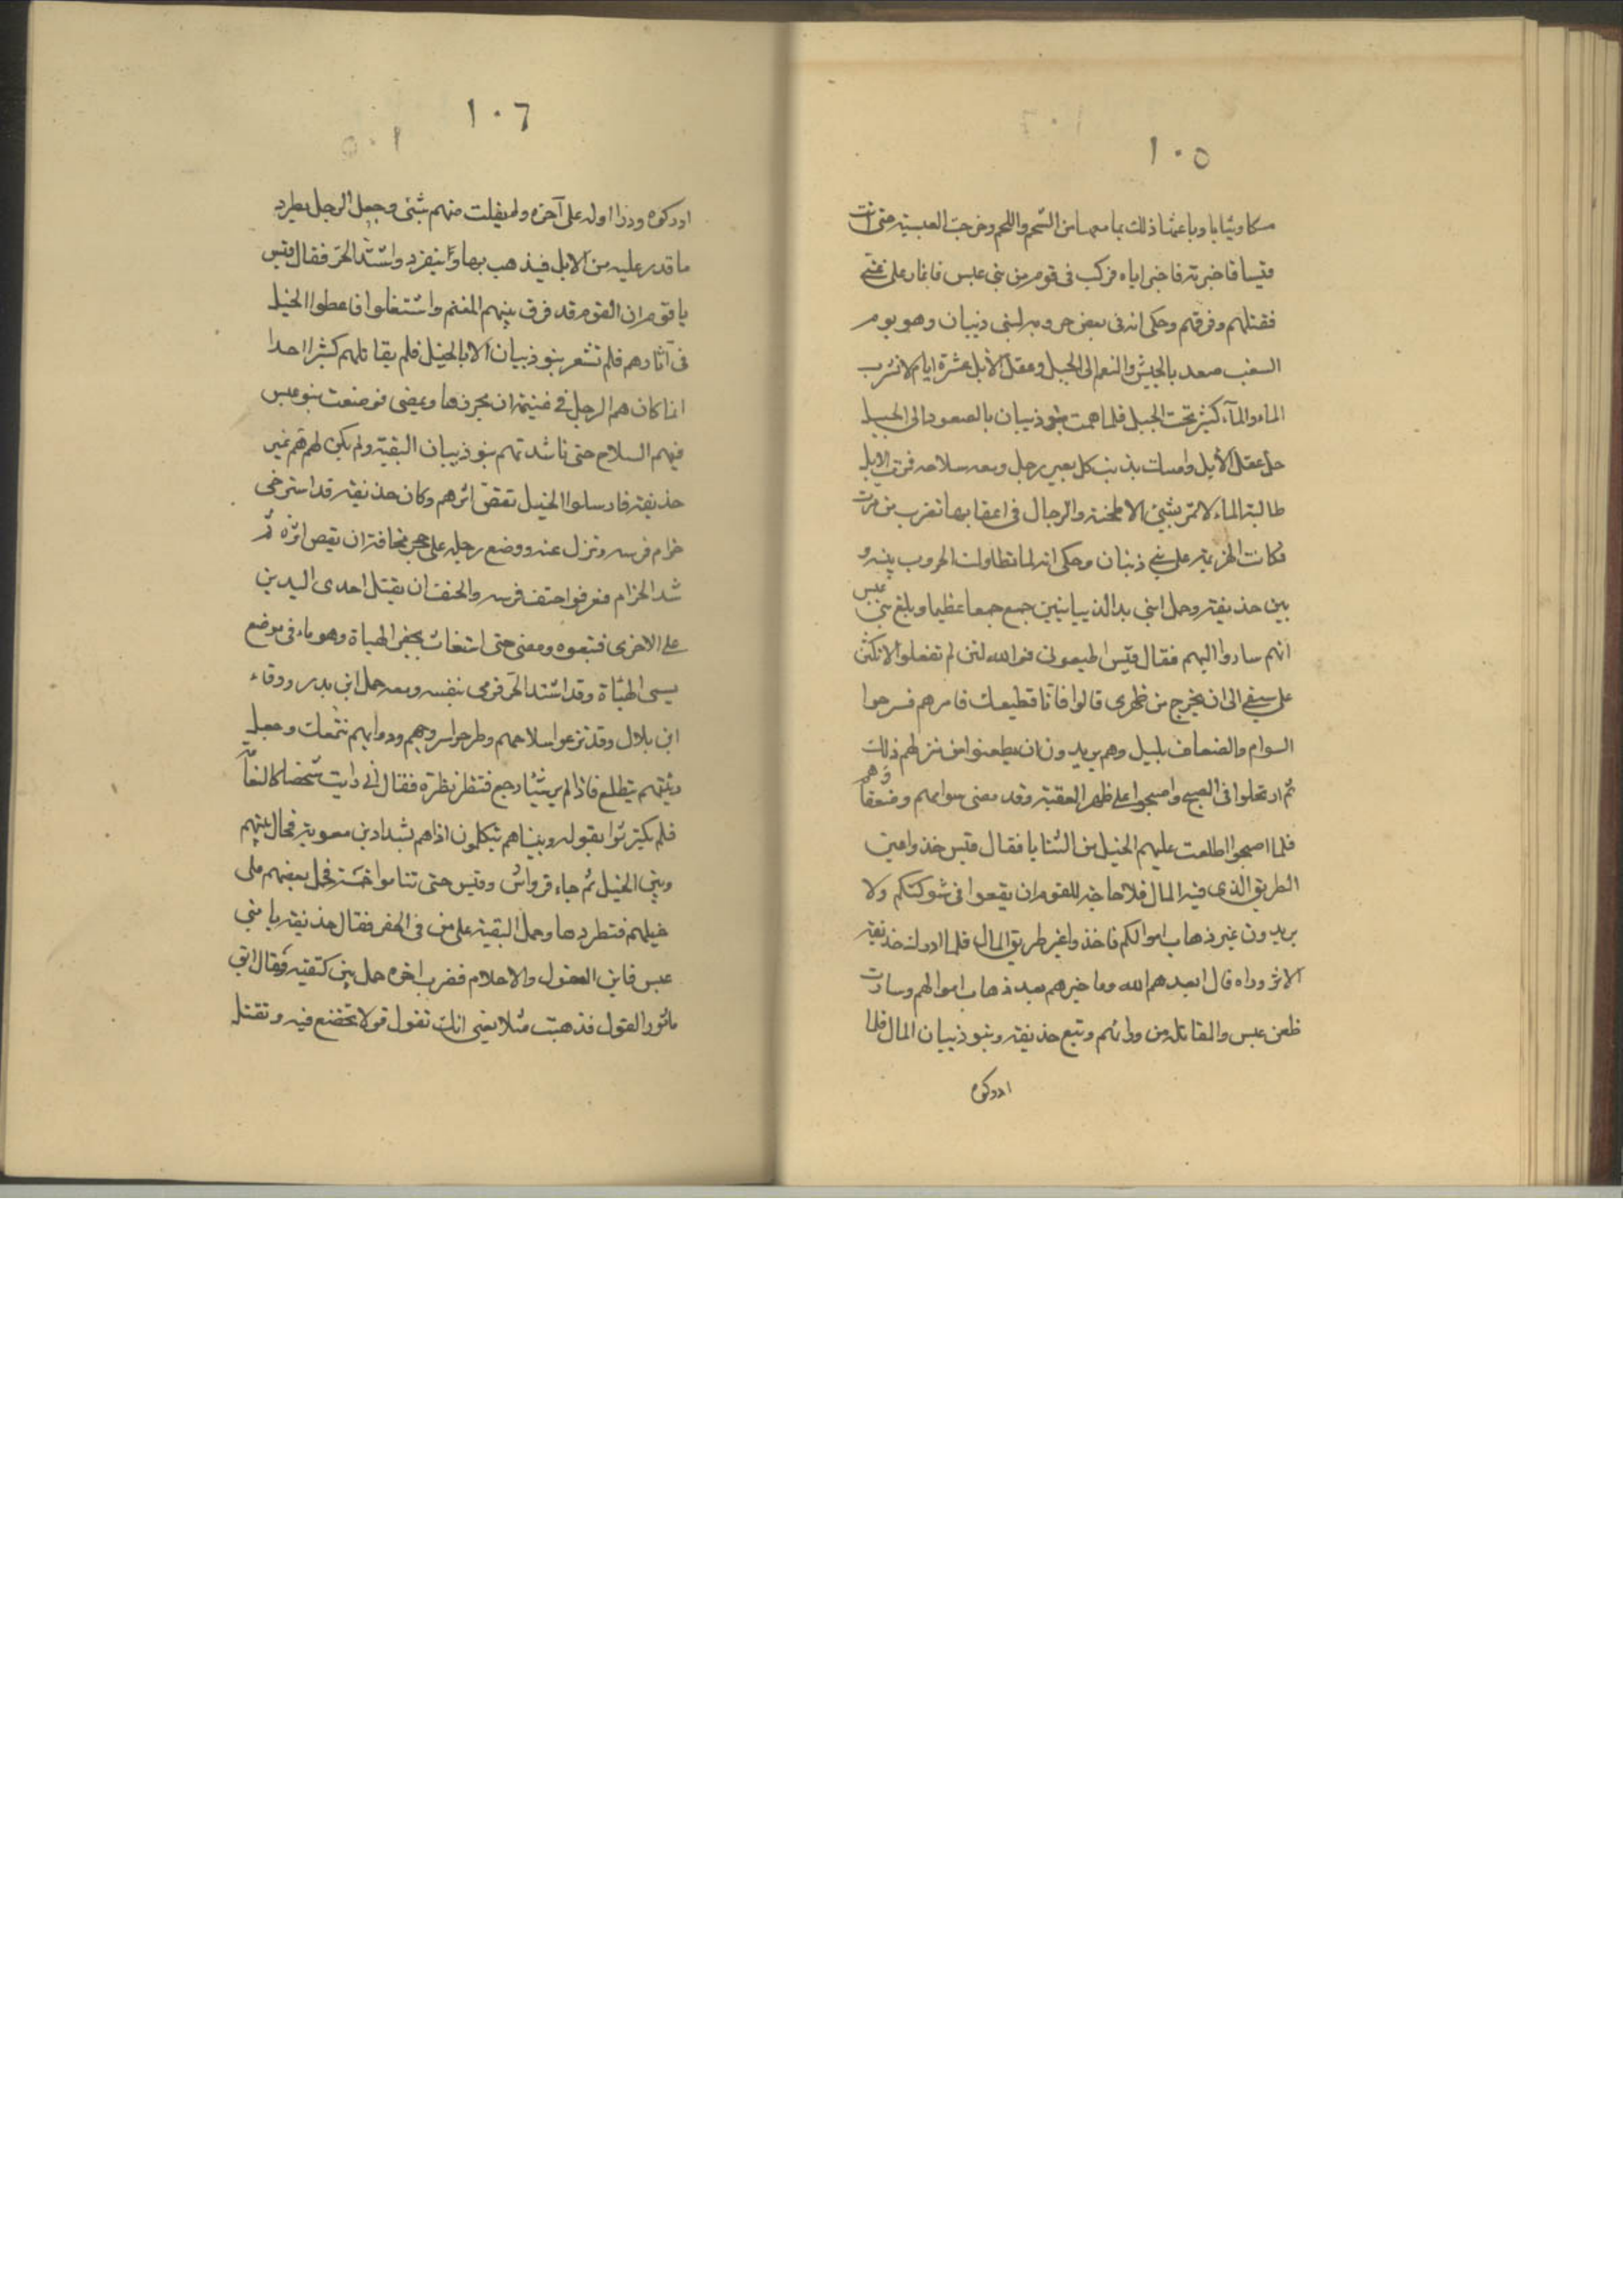 ١٠٥
مسكا وثيابا وباعتها ذلك بما معها من الشحم واللحم وخرجت العبسية حتى اتت
قيسا فاخبرته فاخبر اباه فركب فى قوم من بنى عبس فاغار على غنى
فقتلهم وفرقهم وحكى انه فى بعض حروبه لبنى ذبيان وهو يوم
الشعب صعد بالجيش والنعم الى الجبل وعقل الابل عشرة ايام لا تشرب
الماء والمآء كثير تحت الجبل فلما همت بنو ذبيان بالصعود الى الجبل
حل عقل الابل وامسك بذنب كل بعير رجل ومعه سلاحه فمرت الابل
طالبة الماء لا تمر بشئ الا طحنته والرجال فى اعقابها تضرب من مرت
فكانت الهزيمة على بنى ذبيان وحكى انه لما تطاولت الحروب بينه و
بين حذيفة وحمل ابنى بدر الذبيانيين جمع جمعا عظيما وبلغ بنى عبس
انهم ساروا اليهم فقال قيس اطيعونى فوالله لئن لم تفعلوا لاتكئن
على سيفى الى ان يخرج من ظهرى قالوا فانا نطيعك فامرهم فسرحوا
السوام والضعاف بليل وهم يريدون ان يظعنوا من منزلهم ذلك
ثم ارتحلوا فى الصبح واصبحوا على ظهر العقبة وقد مضى سوامهم وضعفاؤهم
فلما اصبحوا اطلعت عليهم الخيل من الثنايا فقال قيس خذوا عين
الطريق الذى فيه المال فلا حاجة للقوم ان يقعوا فى شوكتكم ولا
يريدون غير ذهاب اموالكم فاخذوا غير طريق المال فلما ادرك حذيفة
الاثر وراه قال ابعدهم الله وما خيرهم بعد ذهاب اموالهم وسارت
ظعن عبس والمقاتلة من ورائهم وتبع حذيفة وبنو ذبيان المال فلما
ادركوه
١٠٦
ادركوه وردوا اوله على آخره ولم يفلت منهم شئ وجعل الرجل يطرد
ما قدر عليه من الابل فيذهب بها وينفرد واشتد الحر فقال قيس
يا قوم ان القوم قد فرق بينهم المغنم واشتغلوا فاعطفوا الخيل
فى آثارهم فلم تشعر بنو ذبيان الا بالخيل فلم يقاتلهم كثير احدا
انما كان هم الرجل فى غنيمته ان يحرزها ويمضى فوضعت بنو عبس
فيهم السلاح حتى ناشدتهم بنو ذبيان البقية ولم يكن لهم هم غير
حذيفة فارسلوا الخيل تقص اثرهم وكان حذيفة قد استرخى
حزام فرسه ونزل عنه ووضع رجله على حجر مخافة ان يقص اثره ثم
شد الحزام فعرفوا حنف فرسه والحنف ان يقبل احدى اليدين
على الاخرى فتبعوه ومضى حتى استغاث بجفر الهباة وهو ماء فى موضع
يسمى الهباة وقد اشتد الحر فرمى بنفسه ومعه حمل ابن بدر وورقاء
ابن بلال وقد نزعوا سلاحهم وطرحوا سروجهم ودوابهم تتمعك وجعل
ربيئتهم يتطلع فاذا لم ير شيئا رجع فنظر نظرة فقال انى رايت شخصا كالنعامة
فلم يكترثوا بقوله وبيناهم يتكلمون اذا هم بشداد بن معوية فحال بينهم
وبين الخيل ثم جاء قرواش وقيس حتى تتاموا خمسة فحمل بعضهم على
خيلهم فتطردها وحمل البقية على من فى الجفر فقال حذيفة يا بنى
عبس فاين العقول والاحلام فضرب اخوه حمل بين كتفيه وقال اتق
ماثور القول فذهبت مثلا يعنى انك تقول قولا تخضع فيه وتقتل